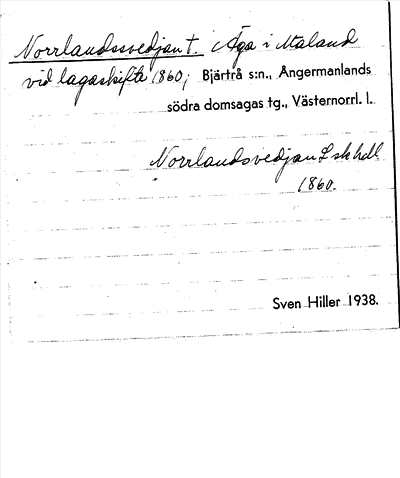 Norrlandssvedjan t. Äga i Maland
vid lagaskifte 1860; Bjärtrå s:n., Ångermanlands
södra domsagas tg., Västernorrl. l.
Norrlandsvedjan L sk hdl.
1860.
Sven Hiller 1938.